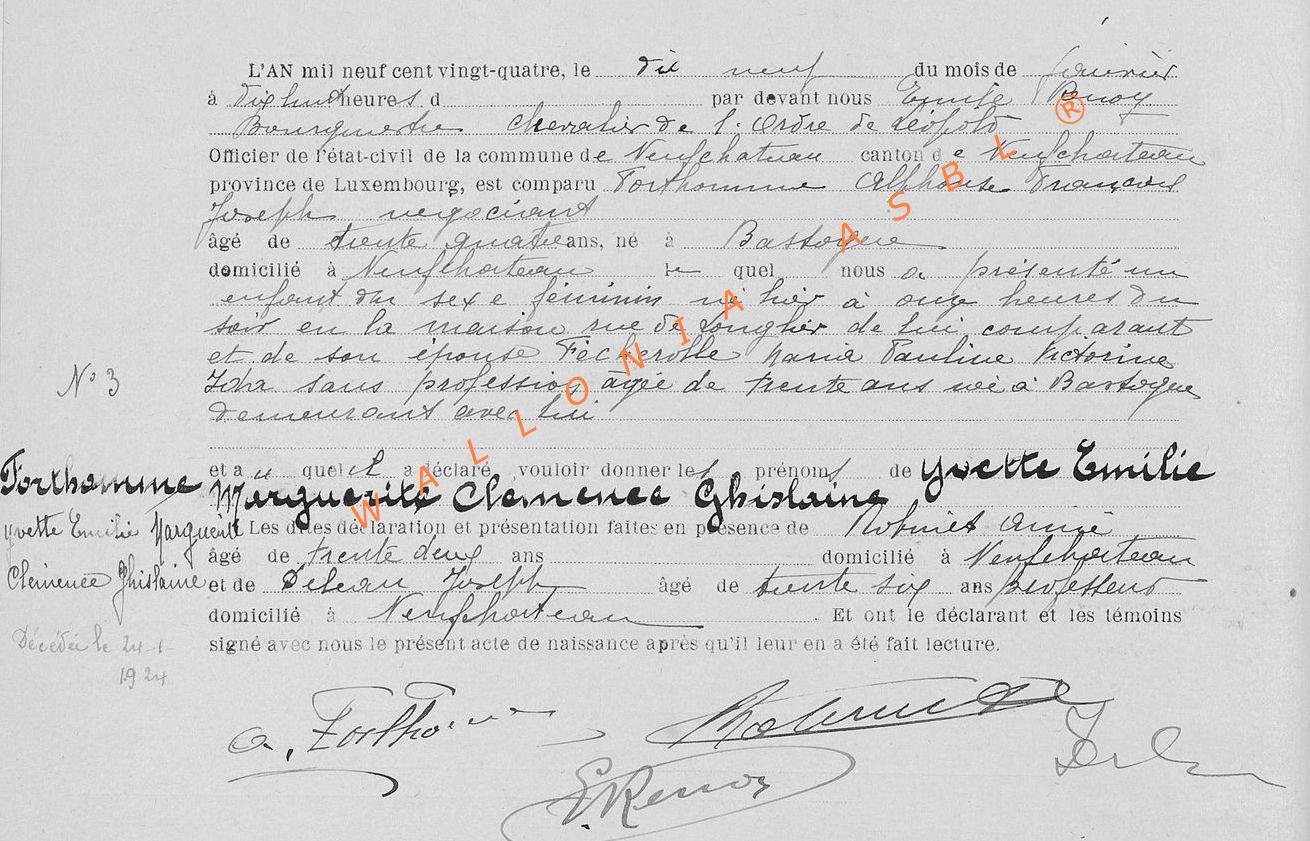 L'AN mil neuf cent vingt-quatre, le dix neuf du mois de janvier
à dix huit heures d par devant nous Emile Renoy
Bourgmestre Chevalier de l'Ordre de Léopold
Officier de l'état-civil de la commune de Neufchateau canton de Neufchateau
province de Luxembourg, est comparu Forthomme Alphonse François
Joseph negociant
âgé de trente quatre ans, né à Bastogne
domicilié à Neufchateau le quel nous a présenté un
enfant du sexe féminin né hier à onze heures du
soir en la maison rue de Longlier de lui comparant
et de son épouse Fécherolle Maria Pauline Victorine
Ida sans profession agée de trente ans née à Bastogne
demeurant avec lui
N° 3
et a u quel il a déclaré vouloir donner les prénoms de Yvette Emilie
Marguerite Clémence Ghislaine
Forthomme
Yvette Emilie Marguerite
Clémence Ghislaine
Décédée le 24-1-
1924
Les dites déclaration et présentation faites en présence de Robinet Aimé
âgé de trente deux ans domicilié à Neufchateau
et de Joseph âgé de trente six ans professeur
domicilié à Neufchateau. Et ont le déclarant et les témoins
signé avec nous le présent acte de naissance après qu'il leur en a été fait lecture.
a. Forthomme
E. Renoy
WALLONIA ASBL ®